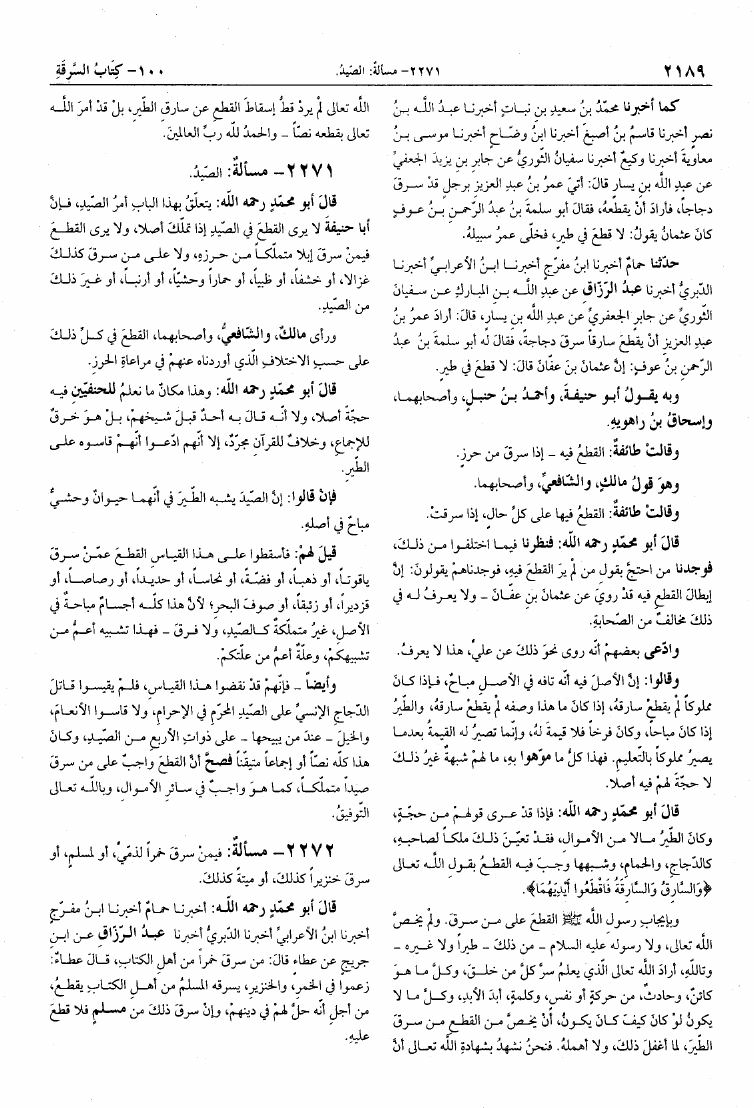 ٢١٨٩
٢٢٧١- مسألةٌ: الصّيدُ.
١٠٠- كِتَابُ السَّرِقَةِ
كما أخبرنا محمّدُ بنُ سعيدِ بنِ نباتٍ أخبرنا عبدُ اللَّه بنُ
نصرٍ أخبرنا قاسمُ بنُ أصبغَ أخبرنا ابنُ وضّاحٍ أخبرنا موسى بنُ
معاويةَ أخبرنا وكيعٌ أخبرنا سفيانُ الثّوريُّ عن جابرِ بنِ يزيدَ الجعفيِّ
عن عبدِ اللَّه بنِ يسارٍ قالَ: أتيَ عمرُ بنُ عبدِ العزيزِ برجلٍ قدْ سرقَ
دجاجاً، فأرادَ أنْ يقطعهُ، فقالَ أبو سلمةَ بنُ عبدِ الرّحمنِ بنُ عوفٍ
كانَ عثمانُ يقولُ: لا قطعَ في طيرٍ، فخلّى عمرُ سبيلهُ.
حدّثنا حمامٌ أخبرنا ابنُ مفرّجٍ أخبرنا ابنُ الأعرابيِّ أخبرنا
الدّبريُّ أخبرنا عبدُ الرّزّاقِ عن عبدِ اللَّه بنِ المباركِ عن سفيانَ
الثّوريِّ عن جابرٍ الجعفريِّ عن عبدِ اللَّه بنِ يسارٍ، قالَ: أرادَ عمرُ بنُ
عبدِ العزيزِ أنْ يقطعَ سارقاً سرقَ دجاجةً، فقالَ له أبو سلمةَ بنُ عبدُ
الرّحمنِ بنُ عوفٍ: إنَّ عثمانَ بنَ عفّانَ قالَ: لا قطعَ في طيرٍ.
وبه يقولُ أبو حنيفةَ، وأحمدُ بنُ حنبلٍ، وأصحابهما،
وإسحاقُ بنُ راهويهِ.
وقالتْ طائفةٌ: القطعُ فيه - إذا سرقَ من حرزٍ.
وهوَ قولُ مالكٍ، والشّافعيِّ، وأصحابهما.
وقالتْ طائفةٌ: القطعُ فيها على كلِّ حالٍ، إذا سرقتْ.
قالَ أبو محمّدٍ رحمه اللَّه: فنظرنا فيما اختلفوا من ذلكَ،
فوجدنا من احتجَّ بقولِ من لمْ يرَ القطعَ فيهِ، فوجدناهمْ يقولونَ: إنَّ
إبطالَ القطعِ فيه قدْ رويَ عن عثمانَ بنِ عفّانَ - ولا يعرفُ له في
ذلكَ مخالفٌ من الصّحابةِ.
وادّعى بعضهمْ أنّه روى نحوَ ذلكَ عن عليٍّ، هذا لا يعرفُ.
وقالوا: إنَّ الأصلَ فيه أنّه تافه في الأصلِ مباحٌ، فإذا كانَ
مملوكاً لمْ يقطعْ سارقهُ، إذا كانَ ما هذا وصفه لمْ يقطعْ سارقهُ، والطّيرُ
إذا كانَ مباحاً، وكانَ فرخاً فلا قيمةَ لهُ، وإنّما تصيرُ له القيمةُ بعدما
يصيرُ مملوكاً بالتّعليمِ. فهذا كلُّ ما موّهوا بهِ، ما لهمْ شبهةٌ غيرُ ذلكَ
لا حجّةَ لهمْ فيه أصلا.
قالَ أبو محمّدٍ رحمه اللَّه: فإذا قدْ عرى قولهمْ من حجّةٍ،
وكانَ الطّيرُ مالا من الأموالِ، فقدْ تعيّنَ ذلكَ ملكاً لصاحبهِ،
كالدّجاجِ، والحمامِ، وشبهها وجبَ فيه القطعُ بقولِ اللَّه تعالى
﴿وَالسَّارِقُ وَالسَّارِقَةُ فَاقْطَعُوا أَيْدِيَهُمَا﴾.
وبإيجابِ رسولِ اللَّه ﷺ القطعَ على من سرقَ. ولمْ يخصَّ
اللَّه تعالى، ولا رسوله عليه السلام - من ذلكَ - طيراً ولا غيره -
وتاللَّهِ، أرادَ اللَّه تعالى الّذي يعلمُ سرَّ كلِّ من خلقَ، وكلَّ ما هوَ
كائنٌ، وحادثٌ، من حركةٍ أو نفسٍ، وكلمةٍ، أبدَ الأبدِ، وكلَّ ما لا
يكونُ لوْ كانَ كيفَ كانَ يكونُ، أنْ يخصَّ من القطعِ من سرقَ
الطّيرَ، لما أغفلَ ذلكَ، ولا أهملهُ. فنحنُ نشهدُ بشهادةِ اللَّه تعالى أنَّ
اللَّه تعالى لمْ يردْ قطُّ إسقاطَ القطعِ عن سارقِ الطّيرِ، بلْ قدْ أمرَ اللَّه
تعالى بقطعه نصّاً - والحمدُ للَّه ربِّ العالمينَ.
٢٢٧١- مسألةٌ: الصّيدُ.
قالَ أبو محمّدٍ رحمه اللَّه: يتعلّقُ بهذا البابِ أمرُ الصّيدِ، فإنَّ
أبا حنيفةَ لا يرى القطعَ في الصّيدِ إذا تملّكَ أصلا، ولا يرى القطعَ
فيمنْ سرقَ إبلا متملّكاً من حرزهِ، ولا على من سرقَ كذلكَ
غزالا، أو خشفاً، أو ظبياً، أو حماراً وحشيّاً، أو أرنباً، أو غيرَ ذلكَ
من الصّيدِ.
ورأى مالكٌ، والشّافعيُّ، وأصحابهما، القطعَ في كلِّ ذلكَ
على حسبِ الاختلافِ الّذي أوردناه عنهمْ في مراعاةِ الحرزِ.
قالَ أبو محمّدٍ رحمه اللَّه: وهذا مكانٌ ما نعلمُ للحنفيّينَ فيه
حجّةً أصلا، ولا أنّه قالَ به أحدٌ قبلَ شيخهمْ، بلْ هوَ خرقٌ
للإجماعِ، وخلافٌ للقرآنِ مجرّدٌ، إلا أنّهم ادّعوا أنّهمْ قاسوه على
الطّيرِ.
فإنْ قالوا: إنَّ الصّيدَ يشبه الطّيرَ في أنّهما حيوانٌ وحشيٌّ
مباحٌ في أصلهِ.
قيلَ لهمْ: فأسقطوا على هذا القياسِ القطعَ عمّنْ سرقَ
ياقوتاً، أو ذهباً، أو فضّةً، أو نحاساً، أو حديداً، أو رصاصاً، أو
قزديراً، أو زئبقاً، أو صوفَ البحرِ؛ لأنَّ هذا كلّه أجسامٌ مباحةٌ في
الأصلِ، غيرُ متملّكةٍ كالصّيدِ، ولا فرقَ - فهذا تشبيه أعمُّ من
تشبيهكمْ، وعلّةٌ أعمُّ من علّتكمْ.
وأيضاً - فإنّهمْ قدْ نقضوا هذا القياسَ، فلمْ يقيسوا قاتلَ
الدّجاجِ الإنسيِّ على الصّيدِ المحرّمِ في الإحرامِ، ولا قاسوا الأنعامَ،
والخيلَ - عندَ من يبيحها - على ذواتِ الأربعِ من الصّيدِ، وكانَ
هذا كلّه نصّاً أو إجماعاً متيقّناً فصحَّ أنَّ القطعَ واجبٌ على من سرقَ
صيداً متملّكاً، كما هوَ واجبٌ في سائرِ الأموالِ، وباللَّه تعالى
التّوفيقُ.
٢٢٧٢- مسألةٌ: فيمنْ سرقَ خمراً لذمّيٍّ، أو لمسلمٍ، أو
سرقَ خنزيراً كذلكَ، أو ميتةً كذلكَ.
قالَ أبو محمّدٍ رحمه اللَّه: أخبرنا حمامٌ أخبرنا ابنُ مفرّجٍ
أخبرنا ابنُ الأعرابيِّ أخبرنا الدّبريُّ أخبرنا عبدُ الرّزّاقِ عن ابنِ
جريجٍ عن عطاءٍ قالَ: من سرقَ خمراً من أهلِ الكتابِ، قالَ عطاءٌ:
زعموا في الخمرِ، والخنزيرِ، يسرقه المسلمُ من أهلِ الكتابِ يقطعُ،
من أجلِ أنّه حلٌّ لهمْ في دينهمْ، وإنْ سرقَ ذلكَ من مسلمٍ فلا قطعَ
عليهِ.